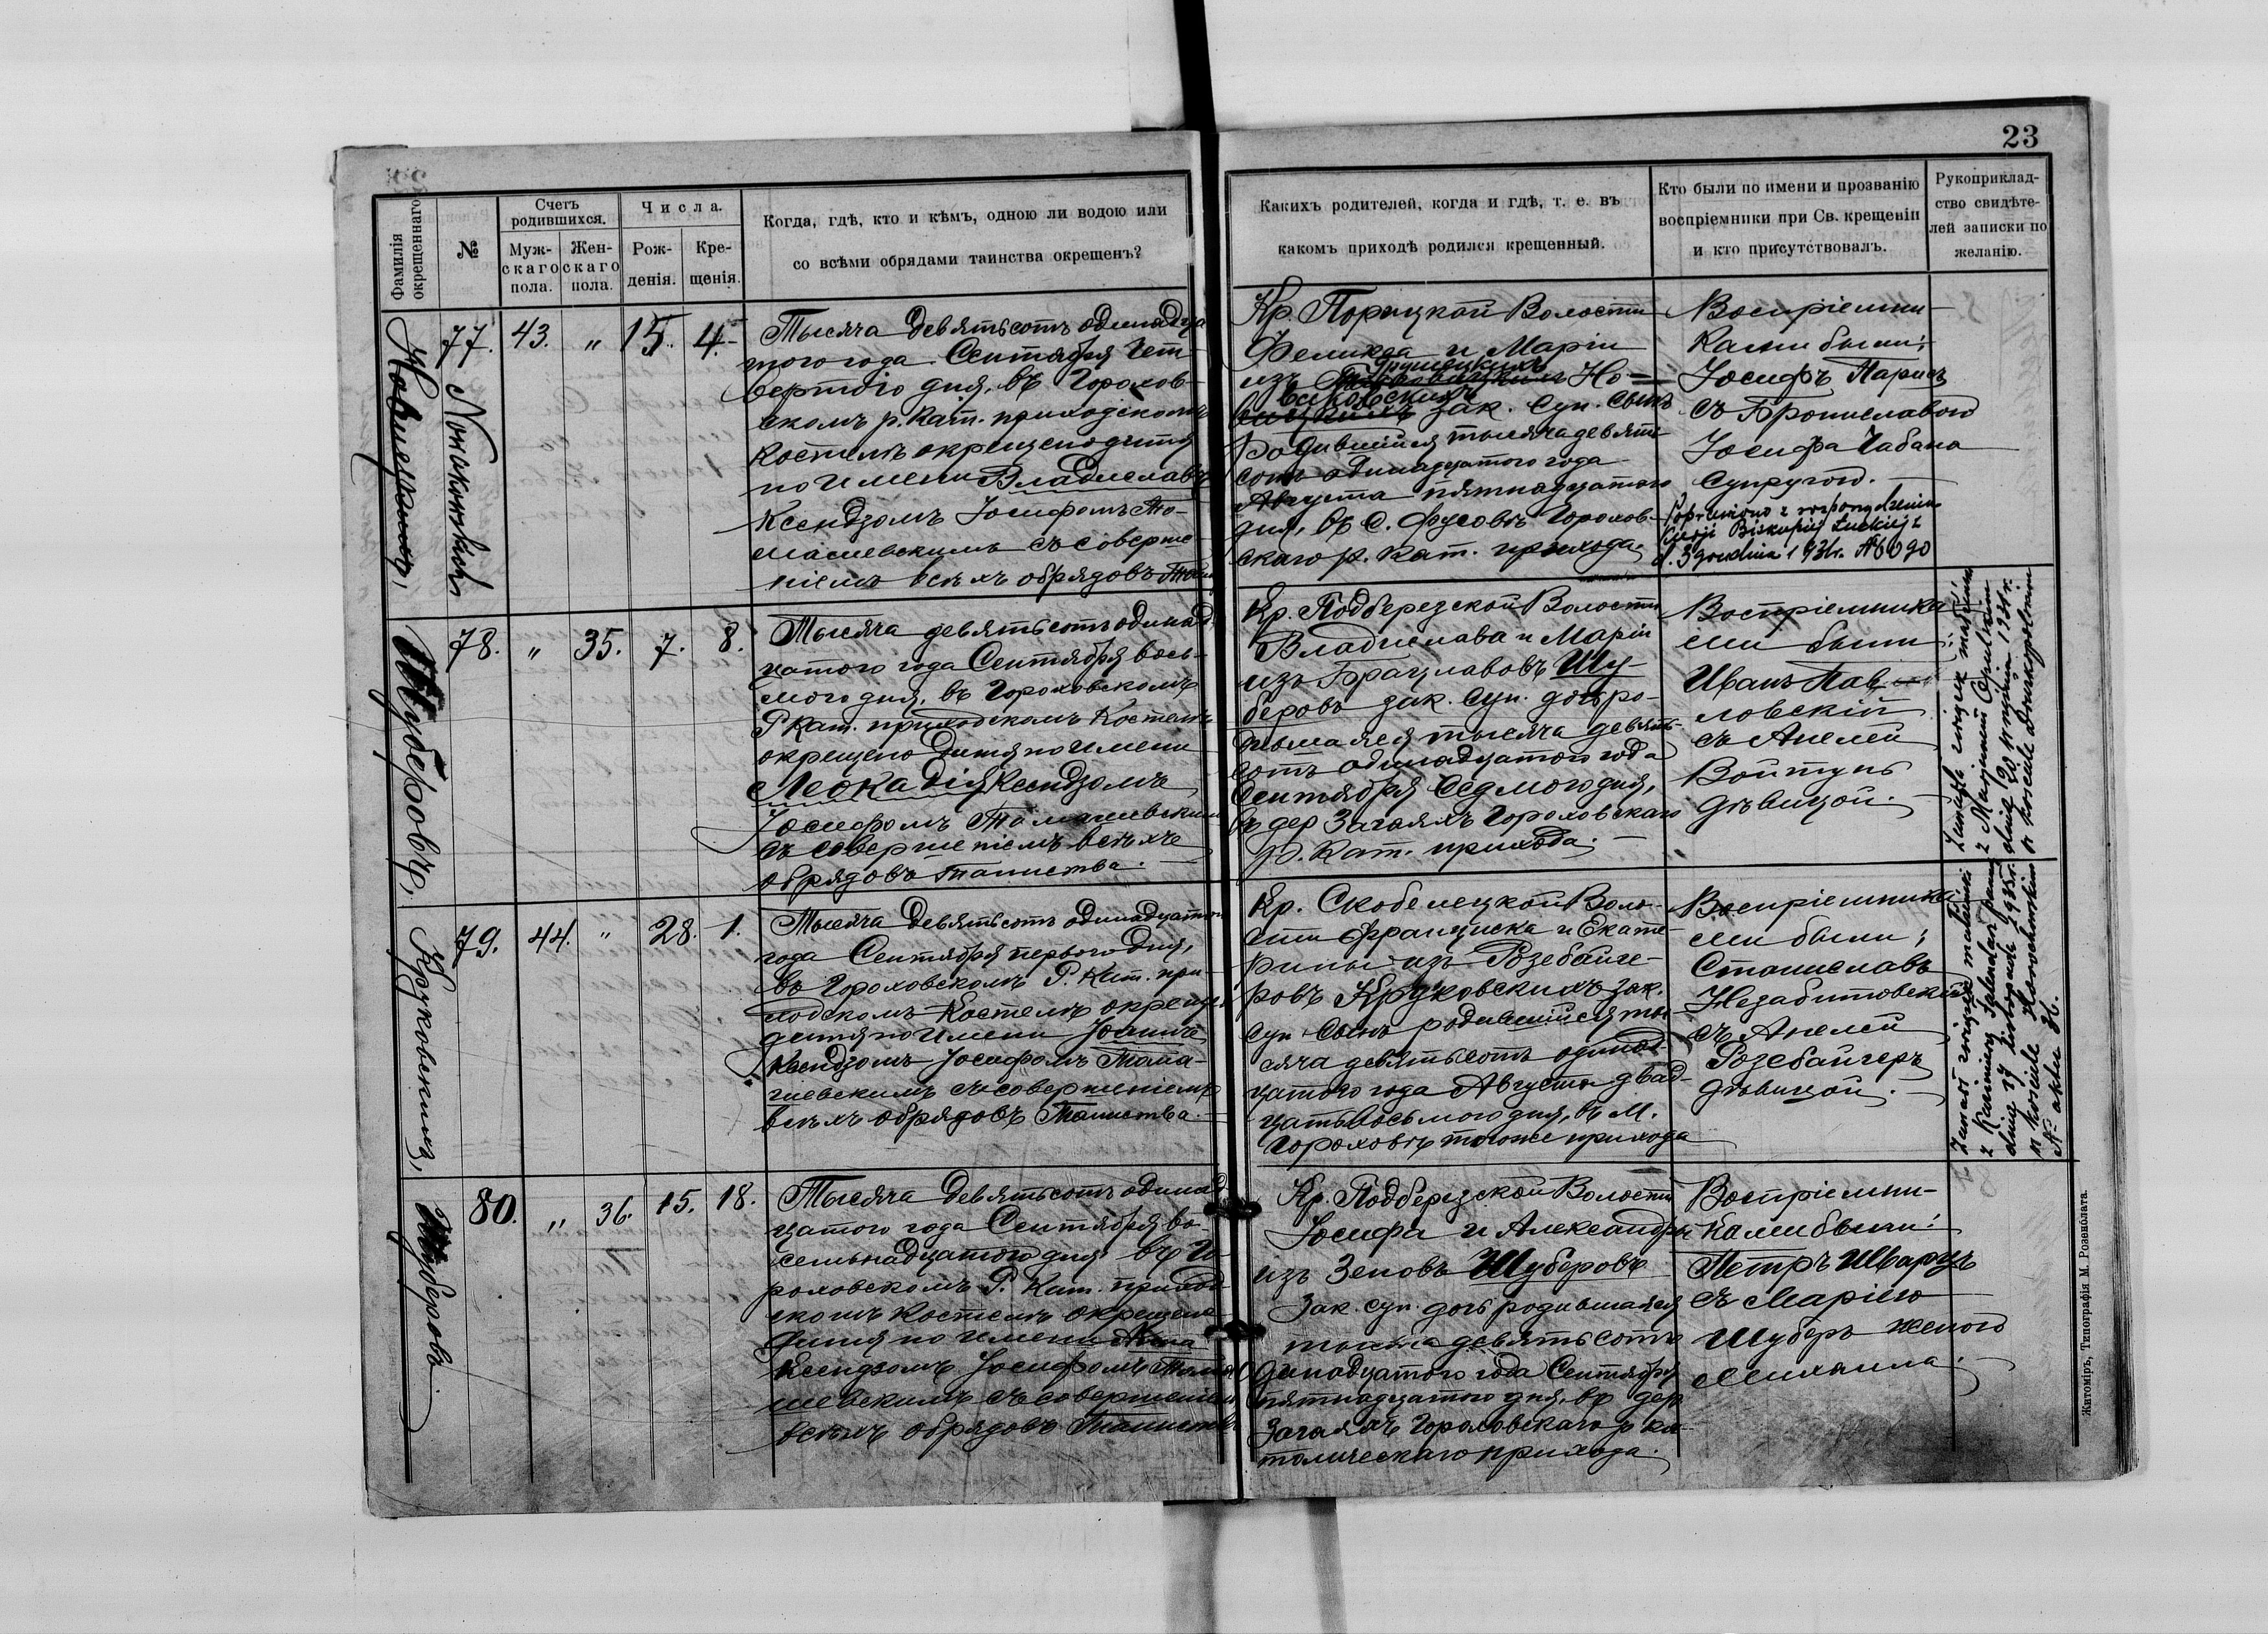 23
Фамилія окрещеннаго
№
Счетъ родившихся.
Муж-
скаго
пола.
Жен-
скаго
пола.
Числа.
Рож-
денія.
Кре-
щенія.
Когда, гдѣ, кто и кѣмъ, одною ли водою или
со всѣми обрядами таинства окрещенъ?
Какихъ родителей, когда и гдѣ, т. е. въ
какомъ приходѣ родился крещенный.
Кто были по имени и прозванію
воспріемники при Св. крещеніи
и кто присутствовалъ.
Рукоприклад-
ство свидѣте-
лей записки по
желанію.
Nowakowskich
77. 43. „ 15. 4.
Тысяча девятьсотъ одинадца
того года Сентября Чет-
вертого дня, въ Горохов-
скомъ р. кат. приходскомъ
костелѣ окрещено дитя
по имени Владиславъ
Ксендзомъ Іосифомъ То-
машевскимъ съ соверше-
ніемъ всѣхъ обрядовъ
Кр. Порицкой Волости
Феликса и Маріи
изъ Но-
ваковскихъ
зак. суп. сынъ
родившійся тысяча девять
сотъ одинадцатого года
Августа пятнадцатого
дня, въ с. Фусовѣ Горохов-
скаго р. кат. прихода
Воспріемни-
ками были:
Іосифъ Парисъ
съ Брониславою
Іосифа Чабана
Супругою.
Poprawiono z rozporządzenia
Kurji Biskupiej Łuckiej z
d. 3 grudnia 1931 r. № 6090
Шуберовъ,
78. „ 35. 7. 8.
Тысяча девятьсотъ одинад
цатого года Сентября вось-
мого дня, въ Гороховскомъ
Р. кат. приходскомъ Костелѣ
окрещено дитя по имени
Леокадія Ксендзомъ
Іосифомъ Томашевскимъ
съ совершеніемъ всѣхъ
обрядовъ таинства.
Кр. Подберезской Волости
Владислава и Маріи
изъ Брацлавовъ Шу-
беровъ зак. суп. дочь ро-
дившаяся тысяча девять
сотъ одинадцатого года
Сентября седмого дня,
въ дер Загаяхъ Гороховскаго
р. кат. прихода.
Воспріемника
ми были:
Иванъ Пав-
ловскій
съ Анелей
Войтунъ
дѣвицой.
Zawarła związek małżeński
z Marjanem
dnia 20
w kościele
Круковскихъ,
79. 44. „ 28. 1.
Тысяча девятьсотъ одинадцатого
года Сентября первого дня,
въ Гороховскомъ Р. Кат. при-
ходскомъ Костелѣ окрещено
дитя по имени
Ксендзомъ Іосифомъ Тома-
шевскимъ съ совершеніемъ
всѣхъ обрядовъ Таинства.
Кр. Скобелецкой Воло-
сти Франциска и Екате-
рины изъ Розебайге-
ровъ Круковскихъ зак.
суп сынъ родившійся ты-
сяча девятьсотъ одинад-
цатого года Августа двад-
цать восьмого дня, въ М.
Гороховѣ тогоже прихода
Воспріемника
ми были:
Станиславъ
Незабитовскій
съ Анелей
Розебайгеръ
дѣвицой.
Zawarł związek małżeński
z Kazimierą
dnia 27 listopada 1935 r.
w kościele Horochowskim
№ aktu 36.
Шуберовъ
80. „ 36. 15. 18.
Тысяча девятьсотъ одинад
цатого года Сентября во
семьнадцатого дня въ Го-
роховскомъ Р. Кат. приход-
скомъ костелѣ окрещено
дитя по имени
Ксендзомъ Іосифомъ Тома
шевскимъ съ совершеніем
всѣхъ обрядовъ Таинства
Кр. Подберезской Волости
Іосифа и Александры
изъ Зеновъ Шуберовъ
зак. суп. дочь родившаяся
тысяча девятьсотъ
одинадцатого года Сентября
пятнадцатого дня, въ дер
Загаяхъ Гороховскаго р ка-
толическаго прихода.
Воспріемни-
ками были:
Петръ Шварцъ
съ Маріею
Шуберъ женою
Михаила.
Житомiръ, Типографія М. Розенблата.